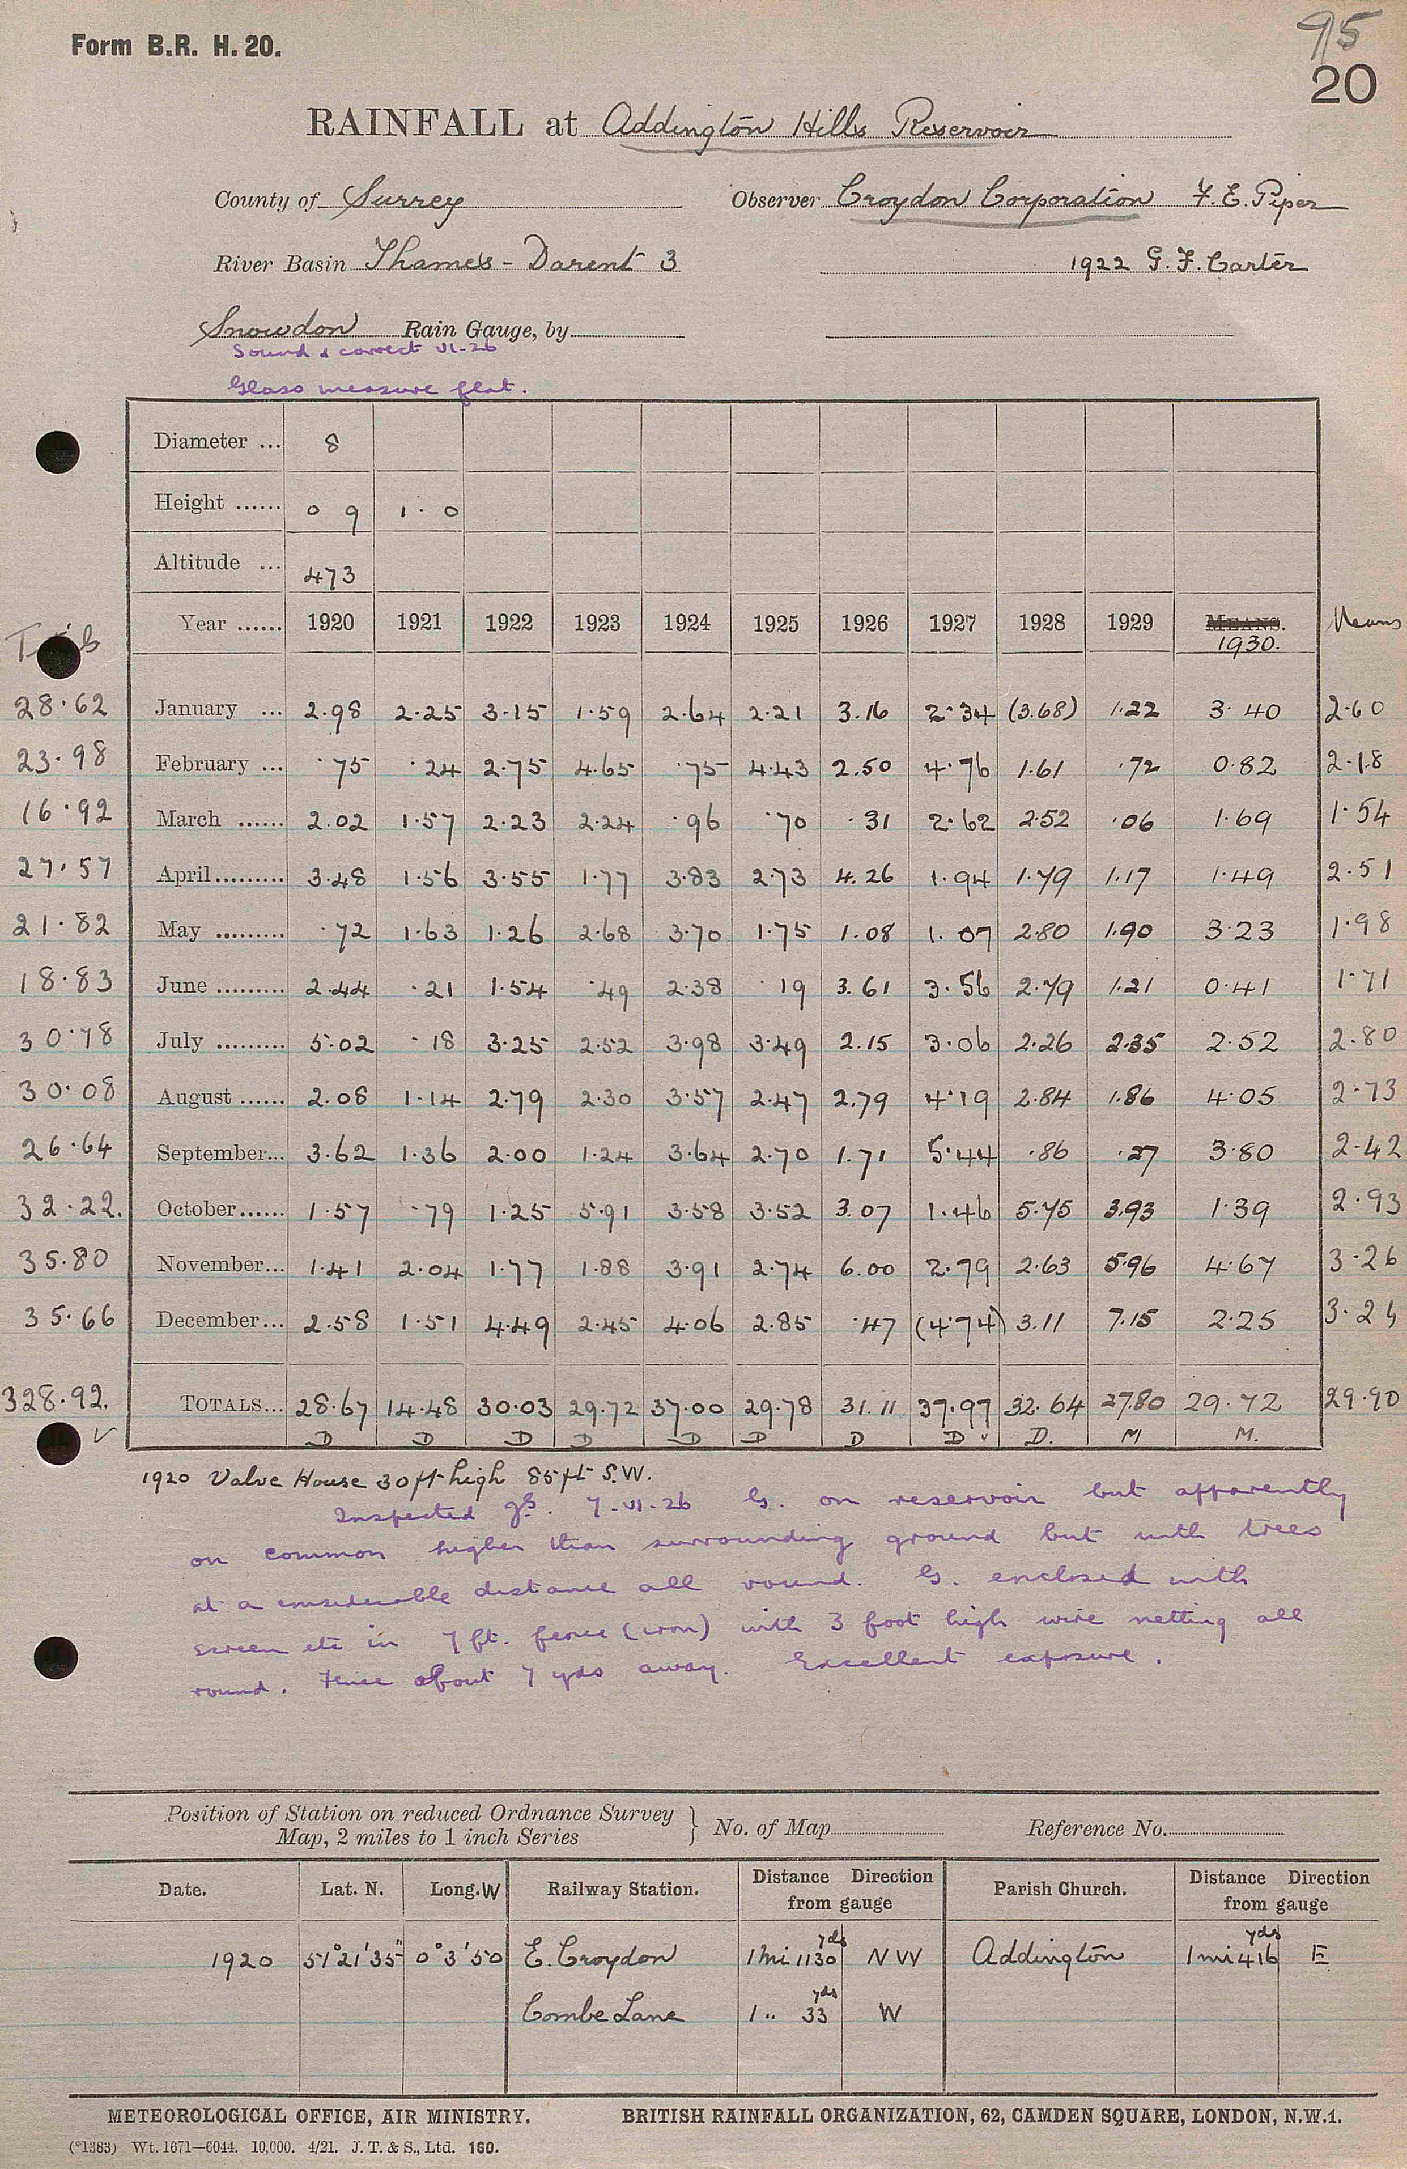 Form B.R. H. 20.
95
20
RAINFALL at Addington Hills Reservoir
County of Surrey Observer Croydon Corporation F. E. Piper
River Basin Thames - Darent 3 1922 G. F. Carter
Snowdon Rain Gauge, by
Sound & correct VI-26
Glass measure flat.
Diameter ... 8
Height ...... 0 9 1 . 0
Altitude ... 473
Year ...... 1920 1921 1922 1923 1924 1925 1926 1927 1928 1929 MEANS. 1930. Means
28.62 January ... 2.98 2.25 3.15 1.59 2.64 2.21 3.16 2.34 (3.68) 1.22 3.40 2.60
23.98 February ... .75 .24 2.75 4.65 .75 4.43 2.50 4.76 1.61 .72 0.82 2.18
16.92 March ...... 2.02 1.57 2.23 2.24 .96 .70 .31 2.62 2.52 .06 1.69 1.54
27.57 April ......... 3.48 1.56 3.55 1.77 3.83 2.73 4.26 1.94 1.79 1.17 1.49 2.51
21.82 May ......... .72 1.63 1.26 2.68 3.70 1.75 1.08 1.07 2.80 1.90 3.23 1.98
18.83 June ......... 2.44 .21 1.54 .49 2.38 .19 3.61 3.56 2.79 1.21 0.41 1.71
30.78 July ......... 5.02 .18 3.25 2.52 3.98 3.49 2.15 3.06 2.26 2.35 2.52 2.80
30.08 August ...... 2.08 1.14 2.79 2.30 3.57 2.47 2.79 4.19 2.84 1.86 4.05 2.73
26.64 September... 3.62 1.36 2.00 1.24 3.64 2.70 1.71 5.44 .86 .27 3.80 2.42
32.22. October...... 1.57 .79 1.25 5.91 3.58 3.52 3.07 1.46 5.75 3.93 1.39 2.93
35.80 November... 1.41 2.04 1.77 1.88 3.91 2.74 6.00 2.79 2.63 5.96 4.67 3.26
35.66 December... 2.58 1.51 4.49 2.45 4.06 2.85 .47 (4.74) 3.11 7.15 2.25 3.24
328.92. TOTALS... 28.67 14.48 30.03 29.72 37.00 29.78 31.11 37.97 32.64 27.80 29.72 29.90
D D D D D D D D D. M M.
1920 Valve House 30 ft high 85 ft S.W.
Inspected 7-VI-26 G. on reservoir but apparently
on common higher than surrounding ground but with trees
at a considerable distance all round. G. enclosed with
screen etc in 7 ft. fence (iron) with 3 foot high wire netting all
round. Fence about 7 yds away. Excellent exposure.
Position of Station on reduced Ordnance Survey Map, 2 miles to 1 inch Series } No. of Map Reference No.
Date. Lat. N. Long. W Railway Station. Distance Direction from gauge Parish Church. Distance Direction from gauge
1920 51° 21' 35" 0° 3' 50 E. Croydon 1 mi 1130 yds N W Addington 1 mi 416 yds E
Combe Lane 1 " 33 yds W
METEOROLOGICAL OFFICE, AIR MINISTRY. BRITISH RAINFALL ORGANIZATION, 62, CAMDEN SQUARE, LONDON, N.W.1.
(*1383) Wt. 1671—6044. 10,000. 4/21. J. T. & S., Ltd. 160.